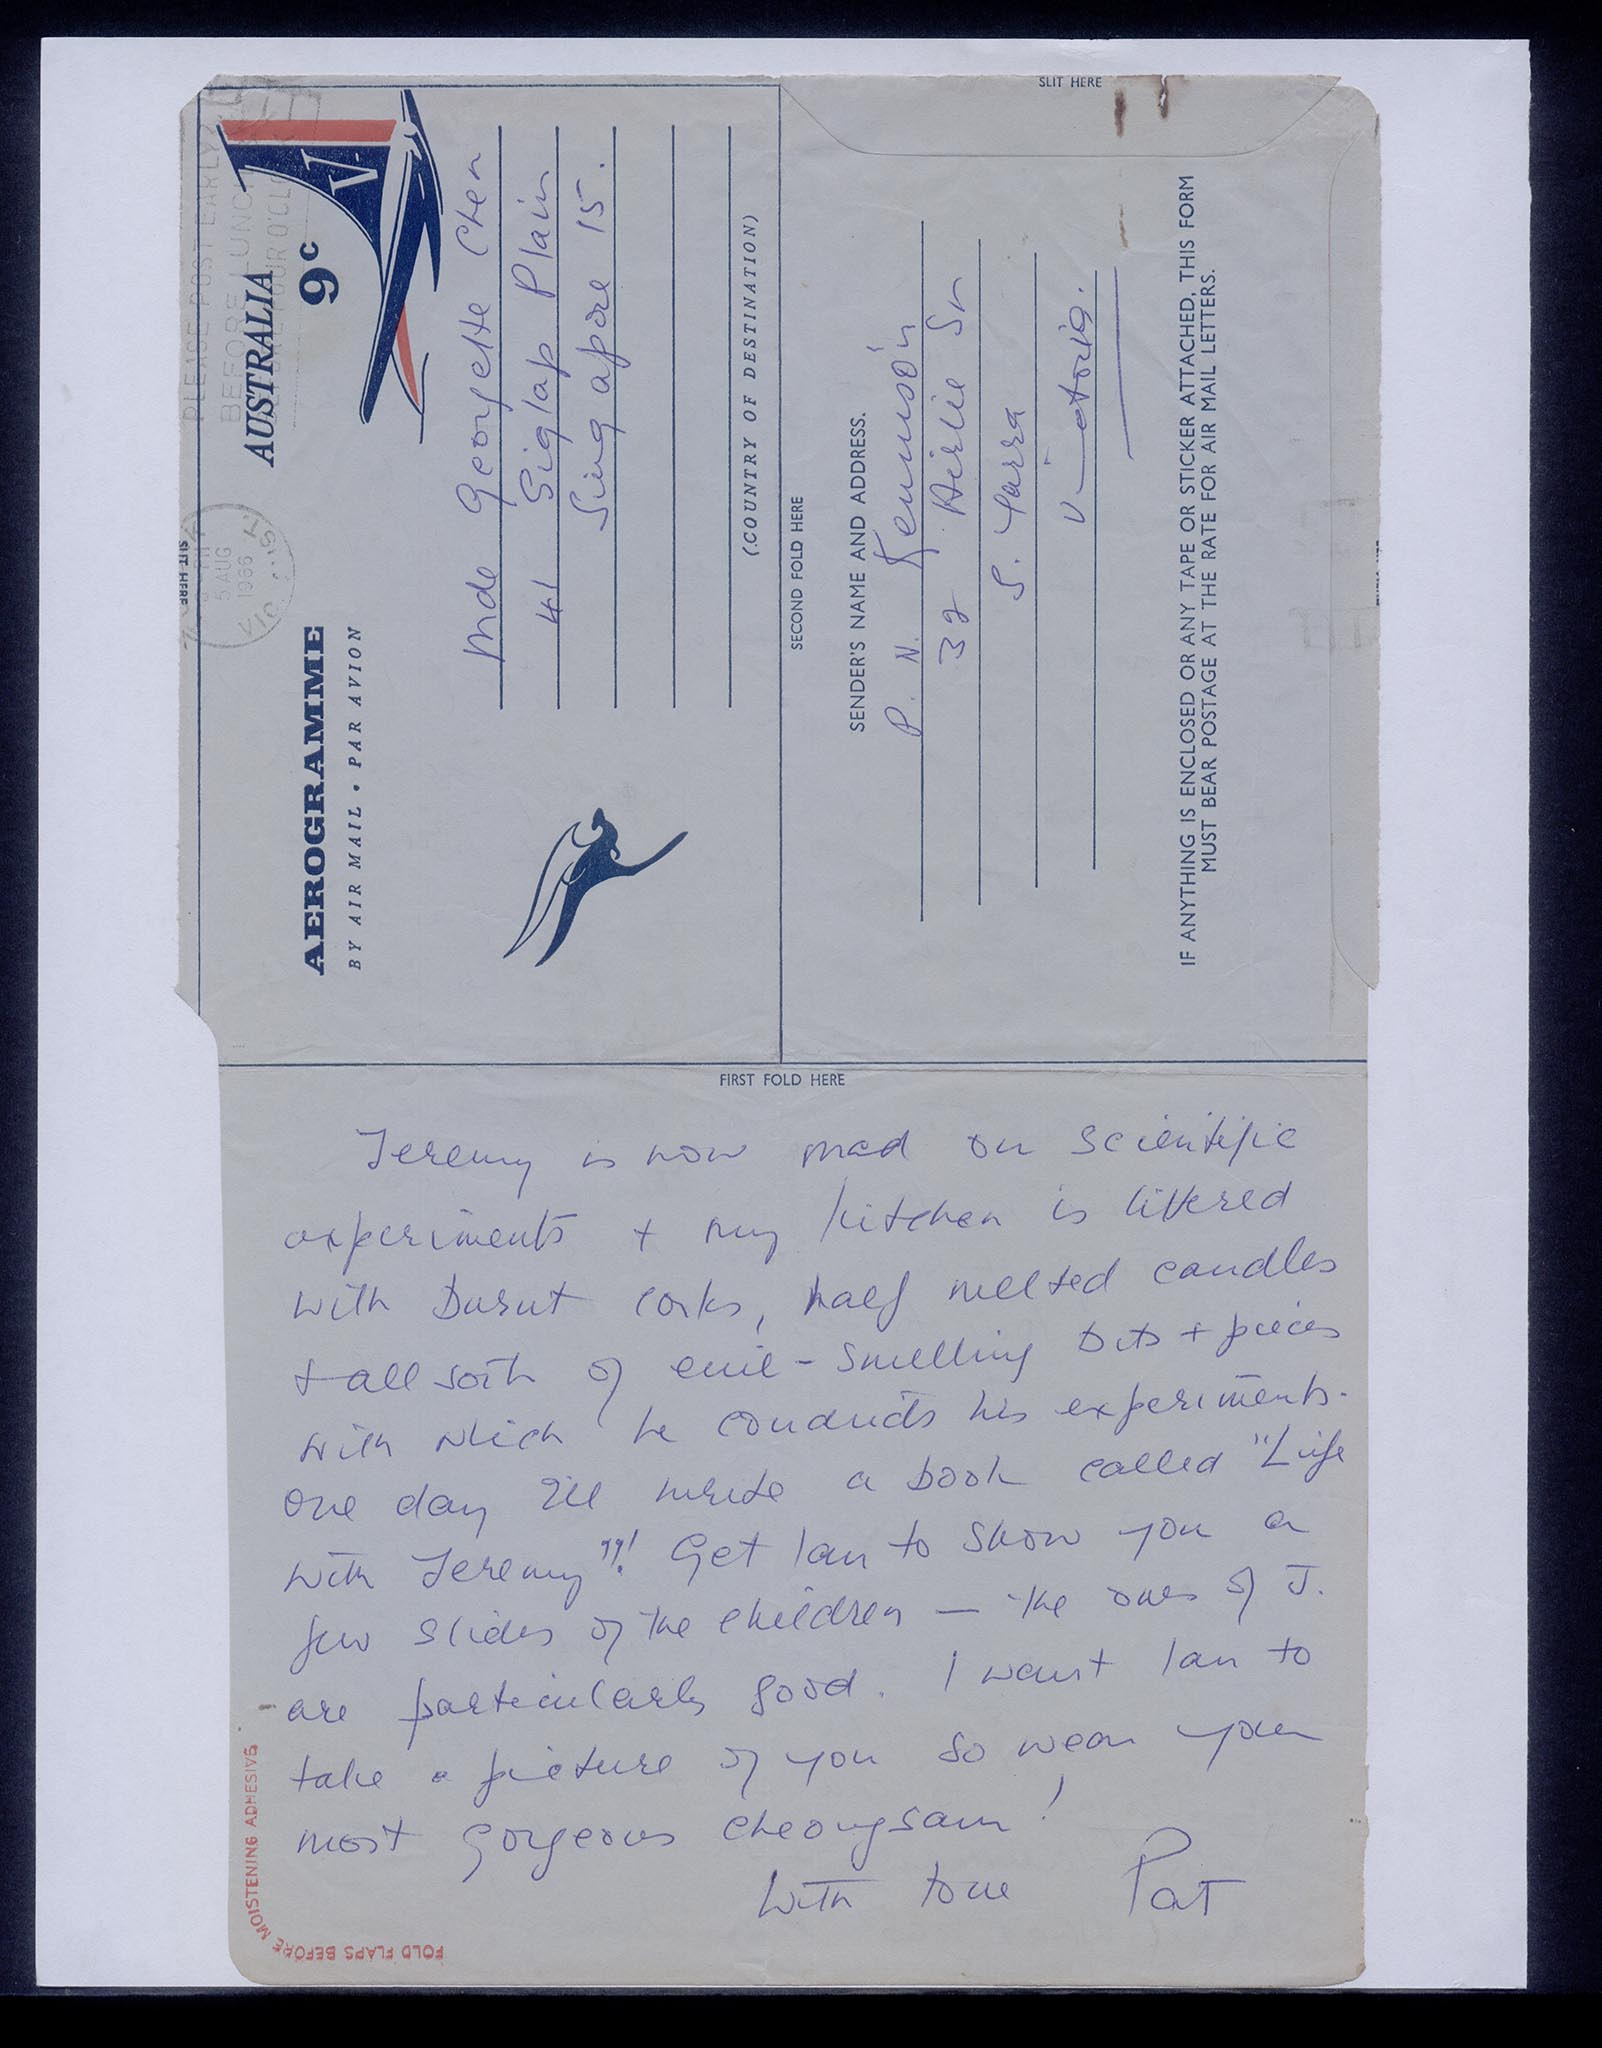 PLEASE POST EARLY
BEFORE LUNCH
5 AUG
1966
VIC.
SLIT HERE
AUSTRALIA
9c
AEROGRAMME
BY AIR MAIL • PAR AVION
Mde Georgette Chen
41 Siglap Plain
Singapore 15.
(COUNTRY OF DESTINATION)
SECOND FOLD HERE
SENDER'S NAME AND ADDRESS.
P. N. Kennison
32 Airlie Sn
S. Yarra
Victoria.
IF ANYTHING IS ENCLOSED OR ANY TAPE OR STICKER ATTACHED, THIS FORM
MUST BEAR POSTAGE AT THE RATE FOR AIR MAIL LETTERS.
SLIT HERE
FIRST FOLD HERE
Jeremy is now mad on scientific
experiments + my kitchen is littered
with burnt corks, half melted candles
+ all sorts of evil-smelling bits + pieces
with which he conducts his experiments.
One day I'll write a book called "Life
with Jeremy"! Get Ian to show you a
few slides of the children — the ones of J.
are particularly good. I want Ian to
take a picture of you so wear your
most gorgeous cheongsam!
With love Pat
FOLD FLAPS BEFORE MOISTENING ADHESIVE